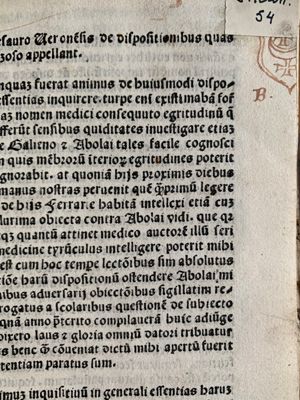 54
B.
esauro Ueronẽsis de dispositionibus quas
zoso appellant.
nquaz fuerat animus de huiusmodi dispo⸗
essentias inquirere. turpe eni existimabã for
iaz nomen medici consequuto egritudinũ q̃
fferũt sensibus quiditates inuestigare etiaz
e Galieno ⁊ Aboali tales facile cognosci
n quis mẽbrorũ iterioꝝ egritudines poterit
gnorabit. at quoniã hijs proximis diebus
manus nostras peruenit quẽ q̃primũ legere
de hijs Ferrarie habitã intellexi etiã cuz
lurima obiecta contra Aboali vidi. que qꝛ
qz quantũ attinet medico auctorẽ illũ seri
nedicine tyrũculus intelligere poterit mihi
est cum hoc tempe lectõibus sim absolutus
tiõe harũ dispositionũ ostendere Aboalẽ mi
nibus aduersarij obiectõibus sigillatim re⸗
rogatus a scolaribus questionẽ de subiecto
qnã anno p̃terito compilauerã huic adiũge
dixero laus ⁊ gloria omniũ datori tribuatur
s bene q̃ cõueniat dictũ mihi apertũ fuerit
tentiam paratus sum.
imum inquisitiuũ in generali essentias haruz